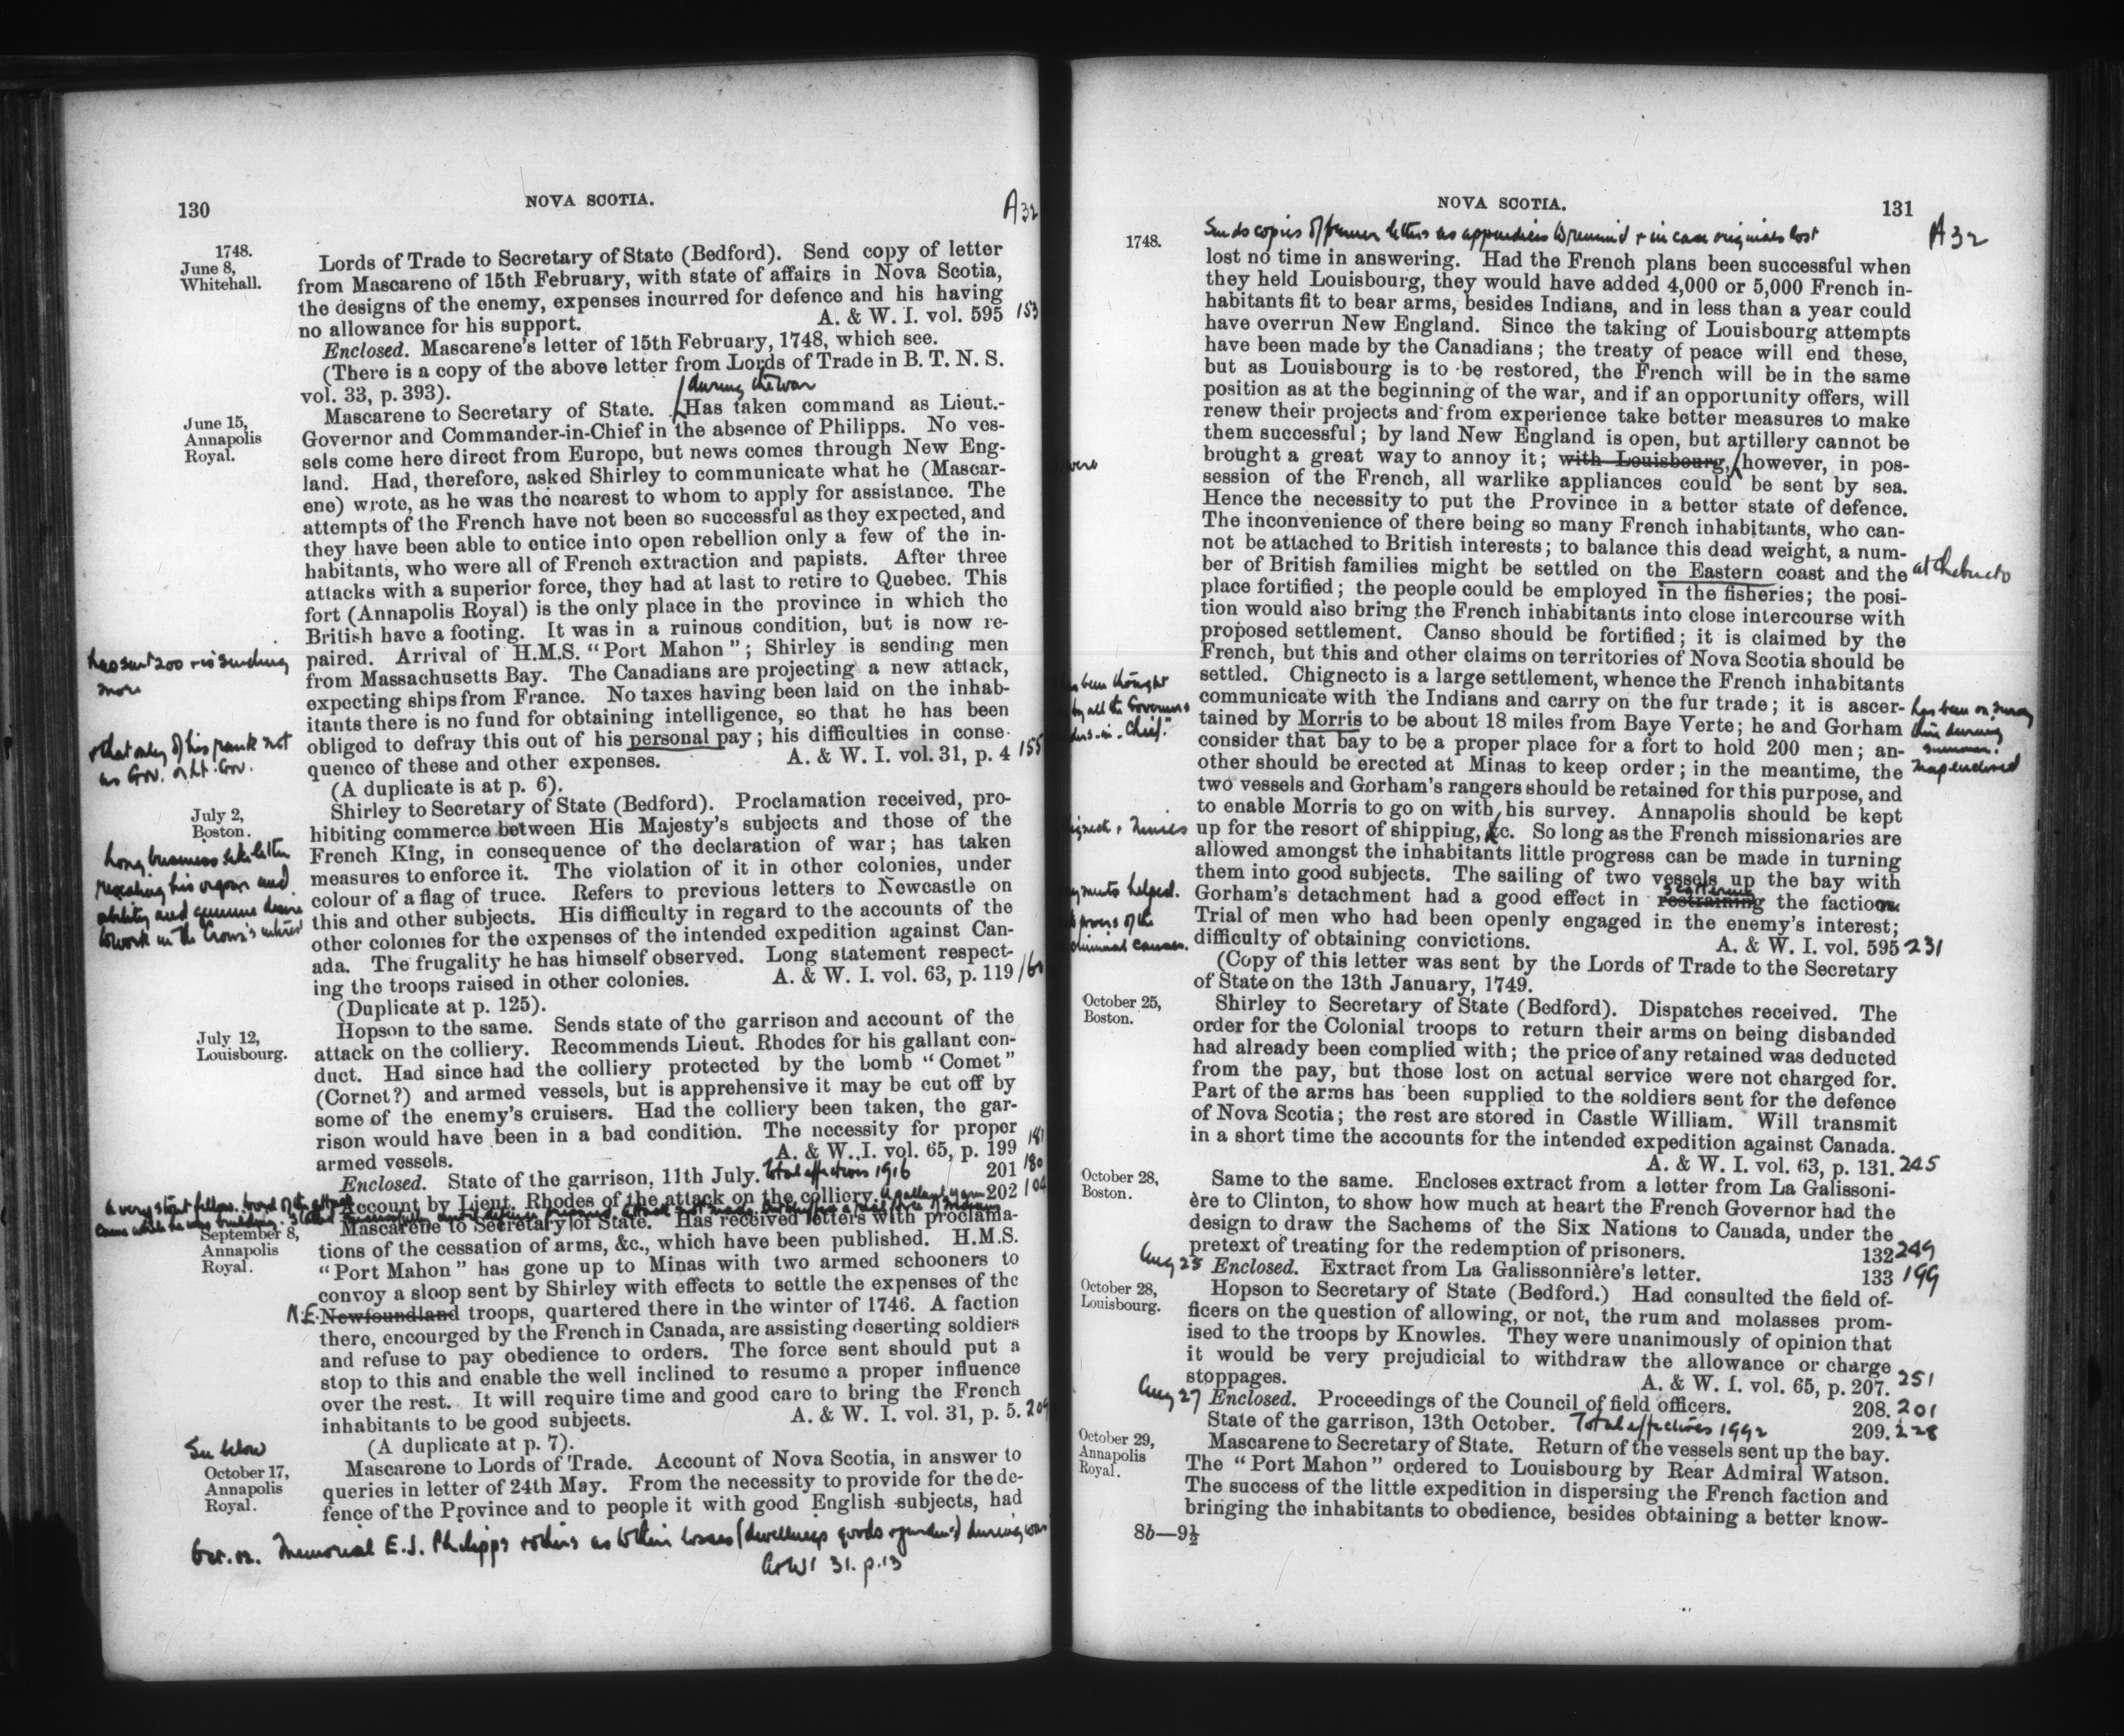 130
NOVA SCOTIA.
A32
1748.
June 8,
Whitehall.
Lords of Trade to Secretary of State (Bedford). Send copy of letter
from Mascarene of 15th February, with state of affairs in Nova Scotia,
the designs of the enemy, expenses incurred for defence and his having
no allowance for his support. A. & W. I. vol. 595 153
Enclosed. Mascarene's letter of 15th February, 1748, which see.
(There is a copy of the above letter from Lords of Trade in B. T. N. S.
vol. 33, p. 393).
during the war
June 15,
Annapolis
Royal.
Mascarene to Secretary of State. Has taken command as Lieut.-
Governor and Commander-in-Chief in the absence of Philipps. No ves-
sels come here direct from Europe, but news comes through New Eng-
land. Had, therefore, asked Shirley to communicate what he (Mascar-
ene) wrote, as he was the nearest to whom to apply for assistance. The
attempts of the French have not been so successful as they expected, and
they have been able to entice into open rebellion only a few of the in-
habitants, who were all of French extraction and papists. After three
attacks with a superior force, they had at last to retire to Quebec. This
fort (Annapolis Royal) is the only place in the province in which the
British have a footing. It was in a ruinous condition, but is now re-
paired. Arrival of H.M.S. "Port Mahon"; Shirley is sending men
has sent 200 + is sending
more
from Massachusetts Bay. The Canadians are projecting a new attack,
expecting ships from France. No taxes having been laid on the inhab-
itants there is no fund for obtaining intelligence, so that he has been
obliged to defray this out of his personal pay; his difficulties in conse-
+ that only of his rank not
as Gov. or Lt. Gov.
quence of these and other expenses. A. & W. I. vol. 31, p. 4 155
(A duplicate is at p. 6).
July 2,
Boston.
Shirley to Secretary of State (Bedford). Proclamation received, pro-
hibiting commerce between His Majesty's subjects and those of the
French King, in consequence of the declaration of war; has taken
measures to enforce it. The violation of it in other colonies, under
colour of a flag of truce. Refers to previous letters to Newcastle on
this and other subjects. His difficulty in regard to the accounts of the
other colonies for the expenses of the intended expedition against Can-
ada. The frugality he has himself observed. Long statement respect-
ing the troops raised in other colonies. A. & W. I. vol. 63, p. 119 160
Long business like letter
revealing his vigour and
ability and genuine desire
to work in the Crown's interest
(Duplicate at p. 125).
July 12,
Louisbourg.
Hopson to the same. Sends state of the garrison and account of the
attack on the colliery. Recommends Lieut. Rhodes for his gallant con-
duct. Had since had the colliery protected by the bomb "Comet"
(Cornet?) and armed vessels, but is apprehensive it may be cut off by
some of the enemy's cruisers. Had the colliery been taken, the gar-
rison would have been in a bad condition. The necessity for proper
armed vessels. A. & W. I. vol. 65, p. 199 181
Enclosed. State of the garrison, 11th July. Total effectives 1916 201 180
Account by Lieut. Rhodes of the attack on the colliery. 202
A very stout fellow.
came while he was building.
September 8,
Annapolis
Royal.
Mascarene to Secretary of State. Has received letters with proclama-
tions of the cessation of arms, &c., which have been published. H.M.S.
"Port Mahon" has gone up to Minas with two armed schooners to
convoy a sloop sent by Shirley with effects to settle the expenses of the
N.E. Newfoundland troops, quartered there in the winter of 1746. A faction
there, encourged by the French in Canada, are assisting deserting soldiers
and refuse to pay obedience to orders. The force sent should put a
stop to this and enable the well inclined to resume a proper influence
over the rest. It will require time and good care to bring the French
inhabitants to be good subjects. A. & W. I. vol. 31, p. 5. 209
(A duplicate at p. 7).
See below
October 17,
Annapolis
Royal.
Mascarene to Lords of Trade. Account of Nova Scotia, in answer to
queries in letter of 24th May. From the necessity to provide for the de-
fence of the Province and to people it with good English subjects, had
Memorial E. J. Philipps + others as to their losses (dwellings goods + gardens) during war
A&WI 31. p. 13
NOVA SCOTIA.
131
A32
1748.
Sends copies of former letters as appendices to remind + in case originals lost
lost no time in answering. Had the French plans been successful when
they held Louisbourg, they would have added 4,000 or 5,000 French in-
habitants fit to bear arms, besides Indians, and in less than a year could
have overrun New England. Since the taking of Louisbourg attempts
have been made by the Canadians; the treaty of peace will end these,
but as Louisbourg is to be restored, the French will be in the same
position as at the beginning of the war, and if an opportunity offers, will
renew their projects and from experience take better measures to make
them successful; by land New England is open, but artillery cannot be
brought a great way to annoy it; with Louisbourg, however, in pos-
session of the French, all warlike appliances could be sent by sea.
Hence the necessity to put the Province in a better state of defence.
The inconvenience of there being so many French inhabitants, who can-
not be attached to British interests; to balance this dead weight, a num-
ber of British families might be settled on the Eastern coast and the at Chebucto
place fortified; the people could be employed in the fisheries; the posi-
tion would also bring the French inhabitants into close intercourse with
proposed settlement. Canso should be fortified; it is claimed by the
French, but this and other claims on territories of Nova Scotia should be
settled. Chignecto is a large settlement, whence the French inhabitants
been thought
by all the Governors
in-Chief."
communicate with the Indians and carry on the fur trade; it is ascer-
tained by Morris to be about 18 miles from Baye Verte; he and Gorham
has been on survey
this during
summer.
map enclosed
consider that bay to be a proper place for a fort to hold 200 men; an-
other should be erected at Minas to keep order; in the meantime, the
two vessels and Gorham's rangers should be retained for this purpose, and
to enable Morris to go on with his survey. Annapolis should be kept
up for the resort of shipping, &c. So long as the French missionaries are
allowed amongst the inhabitants little progress can be made in turning
them into good subjects. The sailing of two vessels up the bay with
scattering
Gorham's detachment had a good effect in restraining the faction
helped.
powers of the
criminal causes.
Trial of men who had been openly engaged in the enemy's interest;
difficulty of obtaining convictions. A. & W. I. vol. 595 231
(Copy of this letter was sent by the Lords of Trade to the Secretary
of State on the 13th January, 1749.
October 25,
Boston.
Shirley to Secretary of State (Bedford). Dispatches received. The
order for the Colonial troops to return their arms on being disbanded
had already been complied with; the price of any retained was deducted
from the pay, but those lost on actual service were not charged for.
Part of the arms has been supplied to the soldiers sent for the defence
of Nova Scotia; the rest are stored in Castle William. Will transmit
in a short time the accounts for the intended expedition against Canada.
A. & W. I. vol. 63, p. 131. 245
October 28,
Boston.
Same to the same. Encloses extract from a letter from La Galissoni-
ère to Clinton, to show how much at heart the French Governor had the
design to draw the Sachems of the Six Nations to Canada, under the
pretext of treating for the redemption of prisoners. 132 249
Aug 25 Enclosed. Extract from La Galissonnière's letter. 133 199
October 28,
Louisbourg.
Hopson to Secretary of State (Bedford.) Had consulted the field of-
ficers on the question of allowing, or not, the rum and molasses prom-
ised to the troops by Knowles. They were unanimously of opinion that
it would be very prejudicial to withdraw the allowance or charge
stoppages. A. & W. I. vol. 65, p. 207. 251
Aug 27 Enclosed. Proceedings of the Council of field officers. 208. 201
State of the garrison, 13th October. Total effectives 1992 209. 228
October 29,
Annapolis
Royal.
Mascarene to Secretary of State. Return of the vessels sent up the bay.
The "Port Mahon" ordered to Louisbourg by Rear Admiral Watson.
The success of the little expedition in dispersing the French faction and
bringing the inhabitants to obedience, besides obtaining a better know-
8b—9½